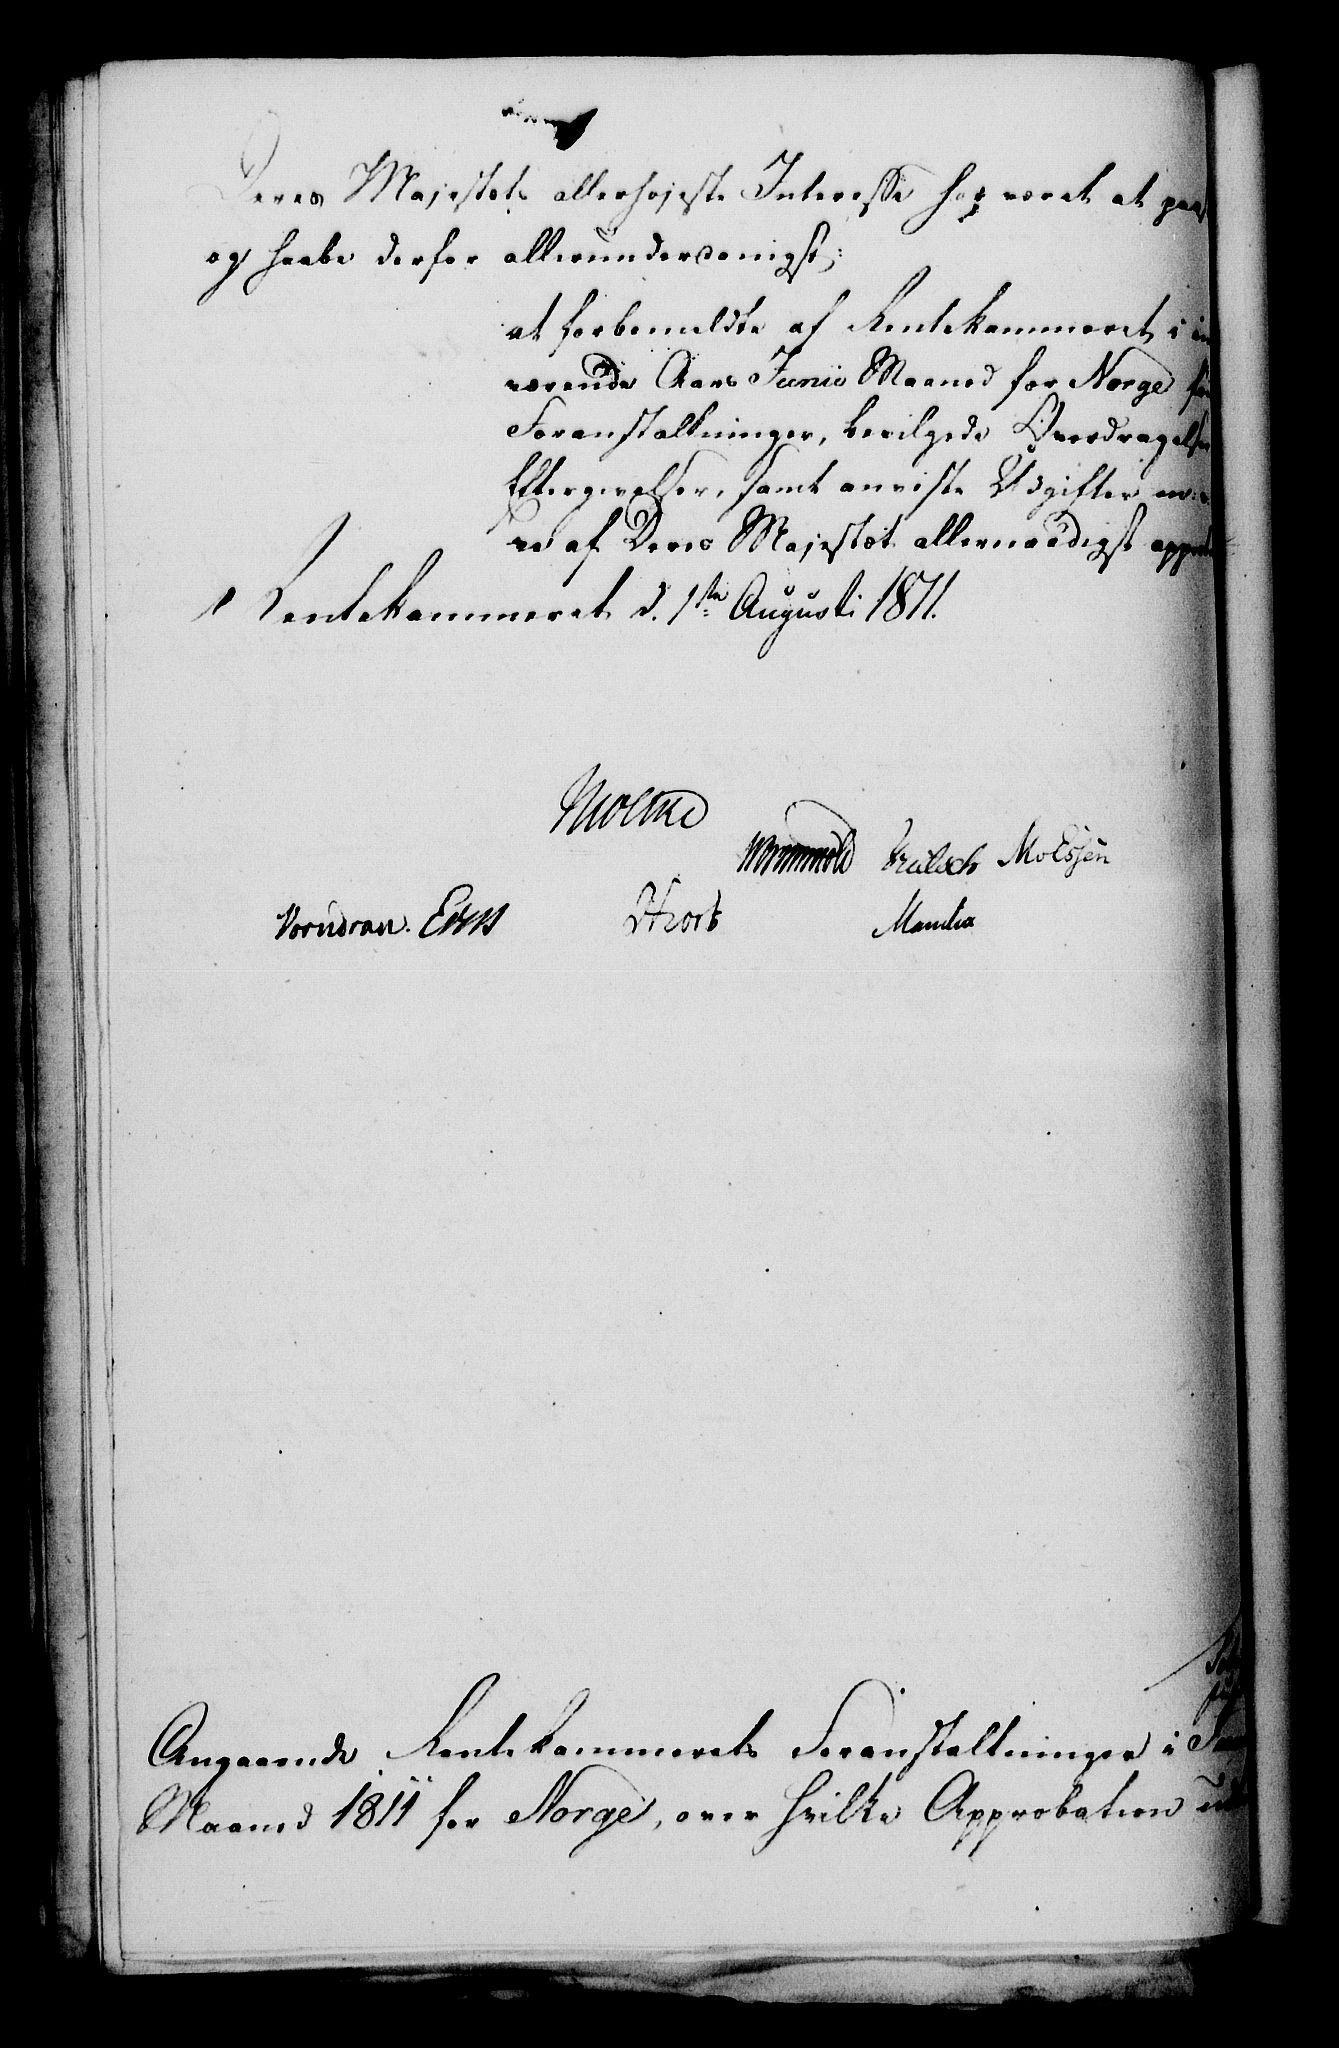 Deres Majestæts allerhøjeste Interesse har været at
og haabe derfor allerunderdanigst:
at forbemeldte af Rentekammeret i
værende Aars Junii Maaned for Norge
Foranstaltninger, bevilgede Overdragelser
Eftergivelser, samt anviste Udgifter
af Deres Majestæt allernaadigst
Rentekammeret d. 1ste Augusti 1811.
Moltke
Wormskiold Fritsch Moessen
Vorndran. Hiort Manthe
Angaaende Rentekammerets Foranstaltninger i
Maaned 1811 for Norge, over hvilke Approbation